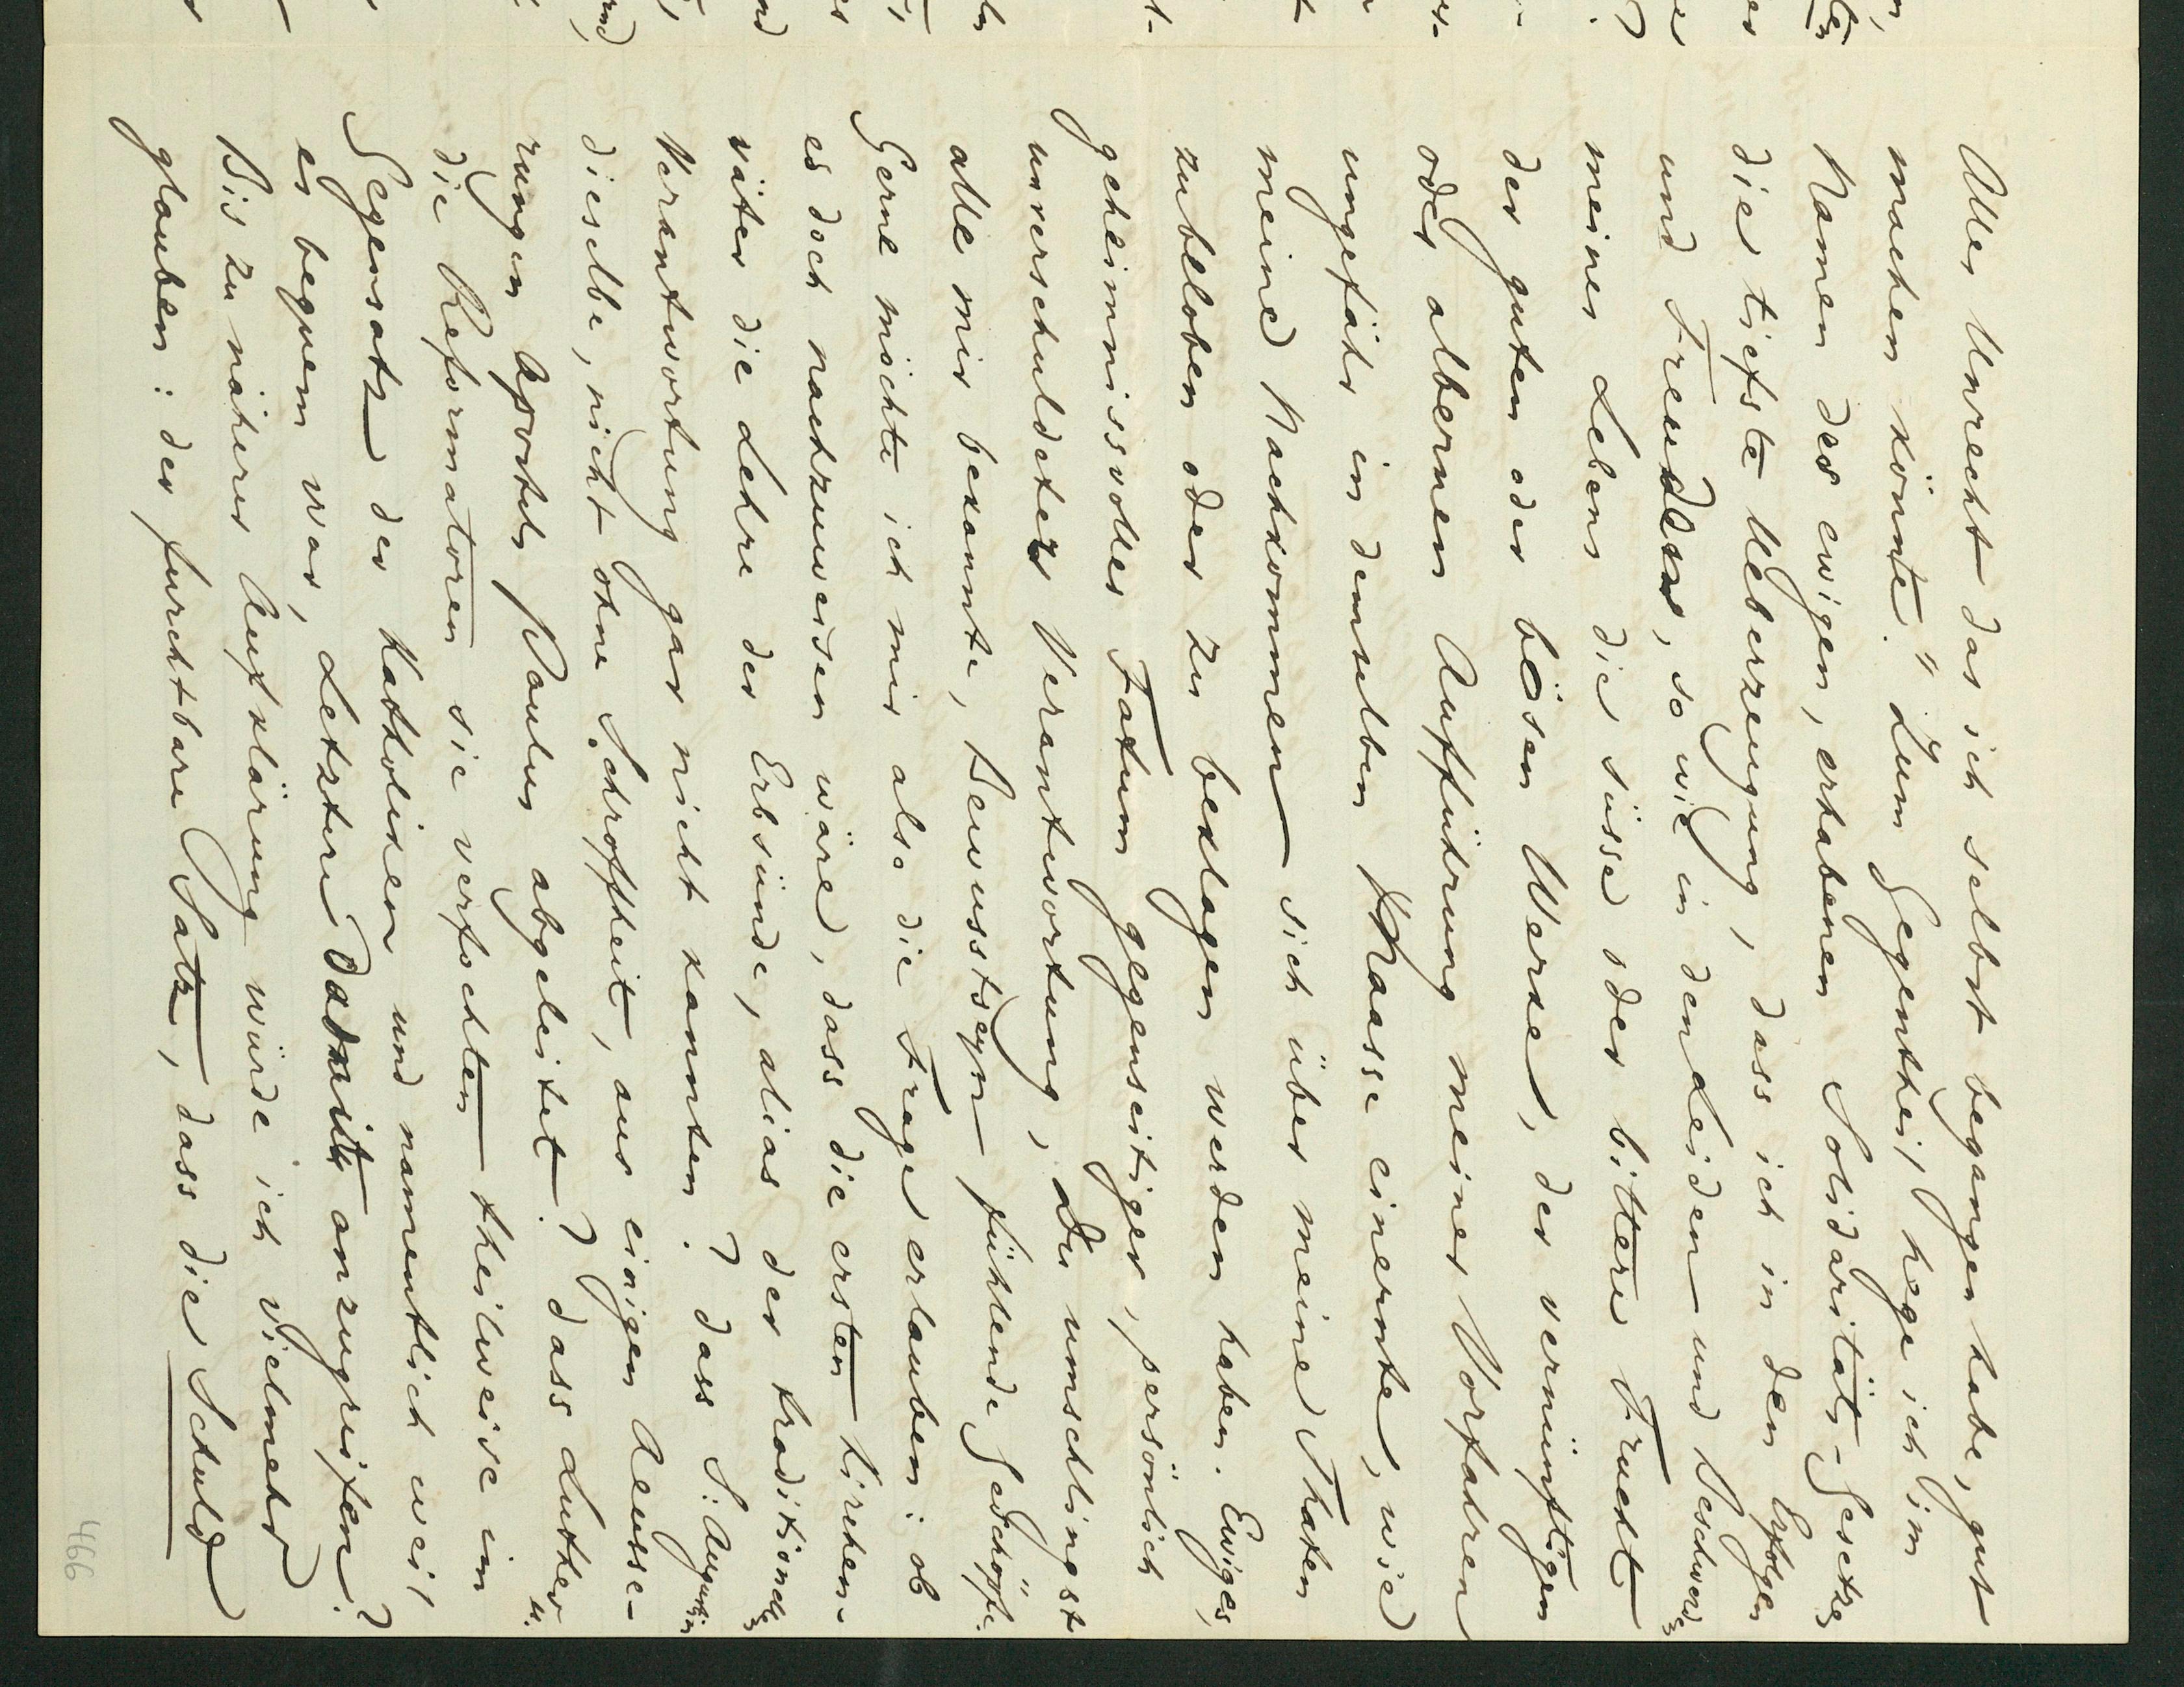 Alles Unrecht das ich selbst begangen habe, gut
machen könnte." Zum Gegentheil hege ich im
Namen des ewigen, erhabenen Solidaritäts-Gesetzes
die tiefste Ueberzeugung, dass ich in den Erfolgen
und Freuden, so wie in den Leiden und Beschwerden
meines Lebens die süsse oder bittere Frucht
der guten oder bösen Werke, der vernünftigen
oder albernen Aufführung meiner Vorfahren
ungefähr in demselben Maasse einernte, wie
meine Nachkommen sich über meine Thaten
zu beloben oder zu beklagen werden haben. Ewiges,
geheimnissvolles Fatum gegenseitiger, persönlich
unverschuldeter Verantwortung, Du umschlingst
alle mir bekannte, Bewusstseyn fühlende Geschöpfe.
Gerne möchte ich mir also die Frage erlauben: ob
es doch nachzuweisen wäre, dass die ersten Kirchen-
väter die Lehre der Erbsünde, alias der traditionellen
Verantwortung gar nicht kannten? dass S. Augustin
dieselbe, nicht ohne Schroffheit, aus einigen Aeusse-
rungen Apostels Paulus abgeleitet? dass Luther u.
die Reformatoren sie verfochten theilweise im
Gegensatz der Katholiken und namentlich weil
es bequem war, Letztere damit anzugreifen?
Bis zu näherer Aufklärung würde ich vielmehr
glauben: der furchtbare Satz, dass die Schuld
4499